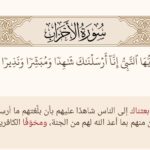 سُورَةُ الأَحْزَابِ
يُّهَا النَّبِيُّ إِنَّا أَرْسَلْنَاكَ شَاهِدًا وَمُبَشِّرًا وَنَذِيرًا
بعثناك إلى الناس شاهدًا عليهم بأن بلغتهم ما أرس
ن منهم بما أعد الله لهم من الجنة، ومخوّفًا الكافرين